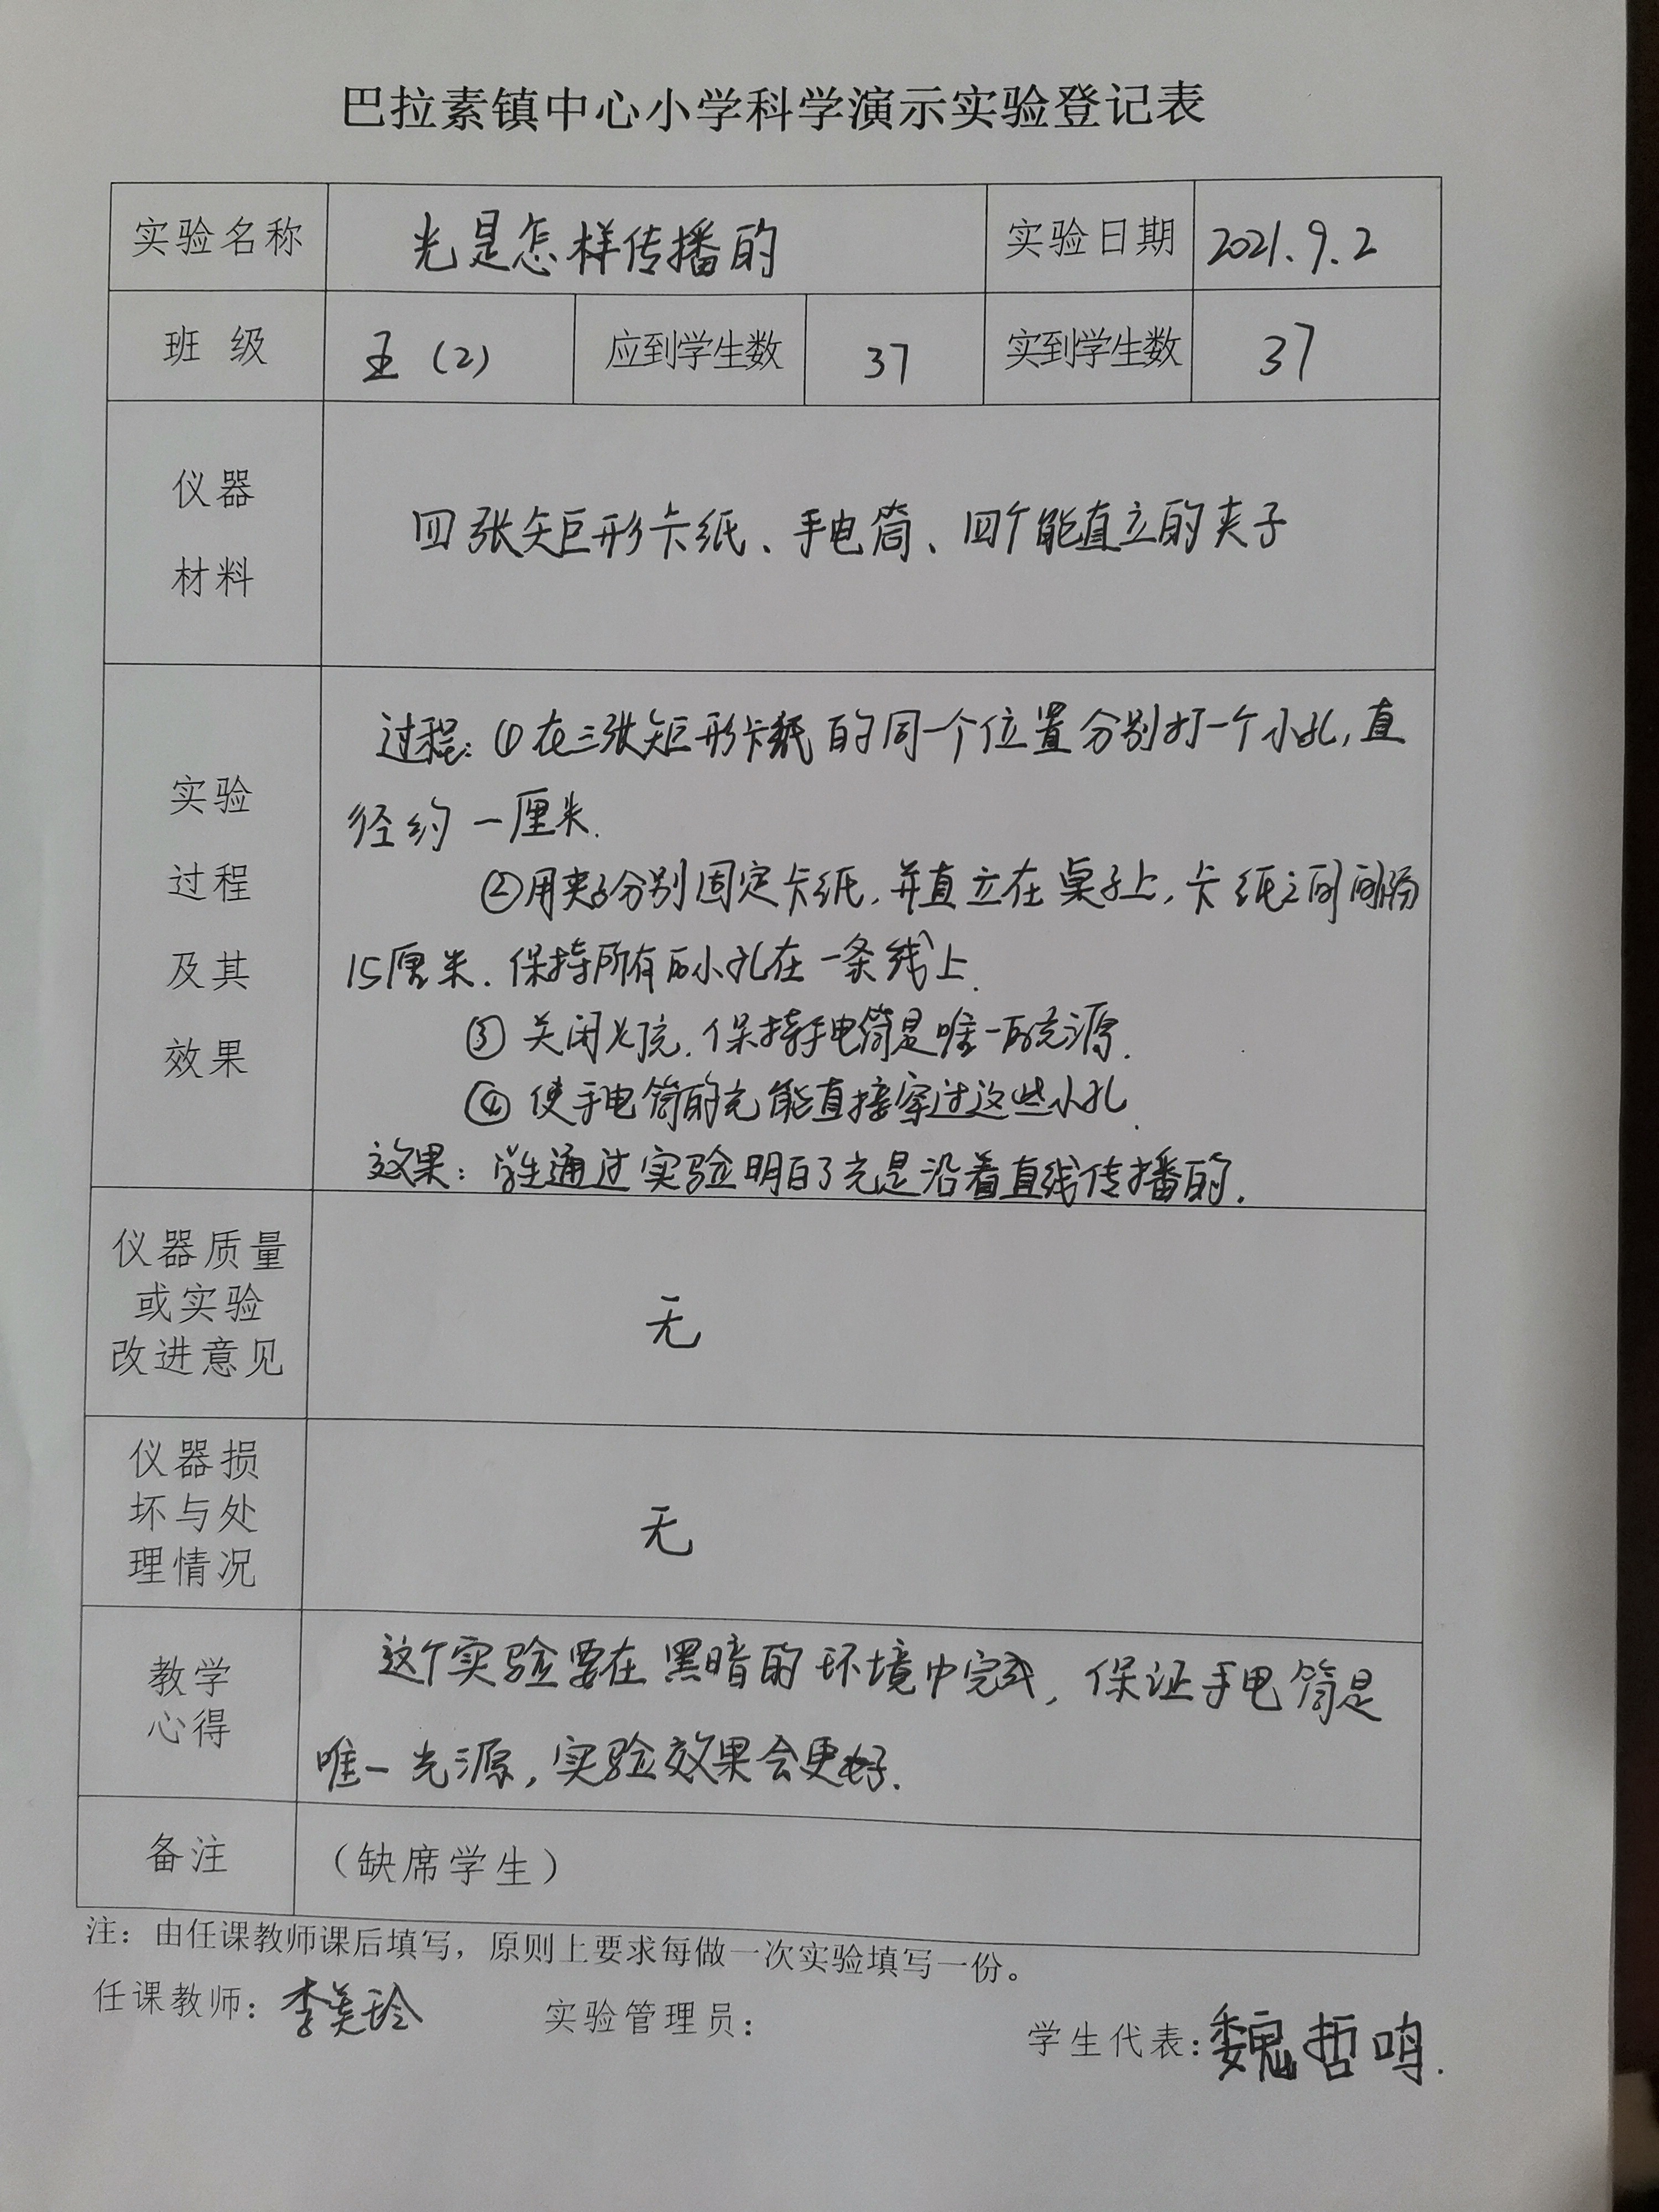 巴拉素镇中心小学科学演示实验登记表
实验名称 光是怎样传播的 实验日期 2021.9.2
班 级 五(2) 应到学生数 37 实到学生数 37
仪器
材料
四张矩形卡纸、手电筒、四个能直立的夹子
实验
过程
及其
效果
过程:①在三张矩形卡纸的同一个位置分别打一个小孔,直
径约一厘米.
②用夹子分别固定卡纸,并直立在桌子上,卡纸之间间隔
15厘米.保持所有的小孔在一条线上.
③关闭灯光.保持手电筒是唯一的光源.
④使手电筒的光能直接穿过这些小孔.
效果:学生通过实验明白了光是沿着直线传播的.
仪器质量
或实验
改进意见
无
仪器损
坏与处
理情况
无
教学
心得
这个实验要在黑暗的环境中完成,保证手电筒是
唯一光源,实验效果会更好.
备注 (缺席学生)
注:由任课教师课后填写,原则上要求每做一次实验填写一份。
任课教师:李美玲 实验管理员: 学生代表:魏哲鸣.